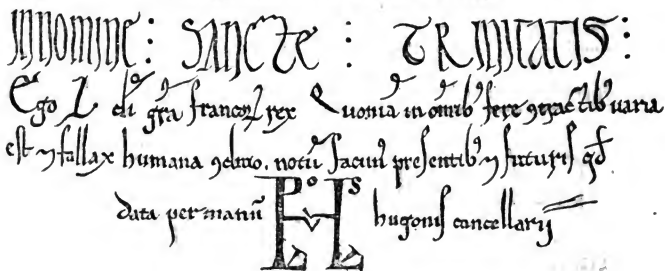 INNOMINE : SANCTE : TRINITATIS :
Ego L di gra francoꝝ rex Quoniā in omibꝰ fere ꝯtractibꝰ varia
est ⁊ fallax humana ꝯditio. notū facimꝰ presentibꝰ ⁊ futuris qd
data per manū hugonis cancellarij